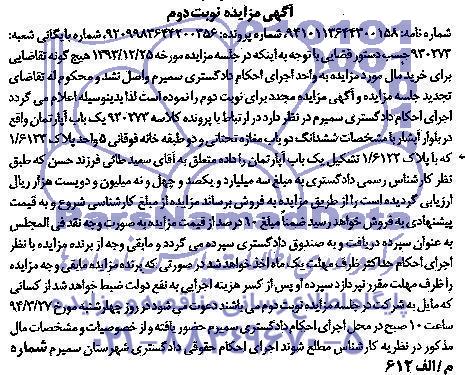 آگهی مزایده نوبت دوم
شماره نامه: ۹۴۱۰۱۱۳۶۴۴۳۰۰۱۵۸ شماره پرونده: ۹۲۰۹۹۸۳۶۴۴۲۰۰۳۵۶ شماره بایگانی شعبه:
۹۳۰۲۷۳ حسب دستور قضایی با توجه به اینکه در جلسه مزایده مورخه ۱۳۹۳/۱۲/۲۵ هیچ گونه تقاضایی
برای خرید مال مورد مزایده به واحد اجرای احکام دادگستری سمیرم واصل نشد و محکوم له تقاضای
تجدید جلسه مزایده و آگهی مزایده مجدد برای نوبت دوم را نموده است لذا بدینوسیله اعلام می گردد
اجرای احکام دادگستری سمیرم در نظر دارد در ارتباط با پرونده کلاسه ۹۳۰۲۷۳ یک باب آپارتمان واقع
در بلوار آبشار با مشخصات ششدانگ دو باب مغازه تحتانی و دو طبقه خانه فوقانی ۵ واحد پلاک ۱/۶۱۲۳
که با پلاک ۱/۶۱۲۲ تشکیل یک باب آپارتمان را داده متعلق به آقای سعید طائی فرزند حسن که طبق
نظر کارشناس رسمی دادگستری به مبلغ سه میلیارد و یکصد و چهل و نه میلیون و دویست هزار ریال
ارزیابی گردیده است را از طریق مزایده به فروش برساند مزایده از مبلغ کارشناسی شروع و به قیمت
پیشنهادی به فروش خواهد رسید ضمناً مبلغ ۱۰ درصد از قیمت مزایده به صورت وجه نقد فی المجلس
به عنوان سپرده دریافت و به صندوق دادگستری سپرده می گردد و مابقی وجه از برنده مزایده با نظر
اجرای احکام حداکثر ظرف مهلت یک ماه اخذ خواهد شد در صورتی که برنده مزایده مابقی وجه مزایده
را ظرف مهلت مقرر نپردازد سپرده او پس از کسر هزینه اجرایی به نفع دولت ضبط خواهد شد از کسانی
که مایل به شرکت در جلسه مزایده نوبت دوم می باشند دعوت می شود در روز چهارشنبه مورخ ۹۴/۳/۲۷
ساعت ۱۰ صبح در محل اجرای احکام دادگستری سمیرم حضور یافته و از خصوصیات و مشخصات مال
مذکور در نظریه کارشناس مطلع شوند اجرای احکام حقوقی دادگستری شهرستان سمیرم شماره ۵
م/الف ۶۱۲